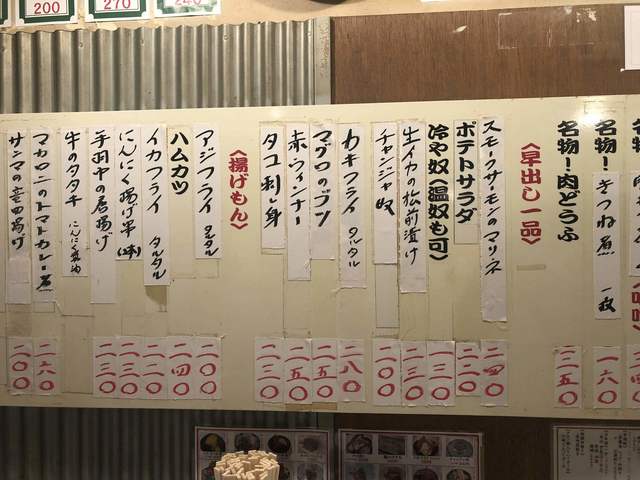 200
270
240
名物!きつね煮 一枚 一六〇
名物!肉どうふ
〈早出し一品〉
スモークサーモンのマリネ 二四〇
ポテトサラダ 二二〇
冷や奴(温奴も可) 一三〇
生イカの松前漬け 二三〇
チャンジャ奴 二〇〇
カキフライ タルタル 二八〇
マグロのブツ 二五〇
赤ウィンナー 二五〇
タコ刺し身 二三〇
〈揚げもん〉
アジフライ タルタル 二〇〇
ハムカツ 二四〇
イカフライ タルタル 二二〇
にんにく揚げ串 二三〇
手羽中の唐揚げ 二三〇
牛のタタキ にんにく醤油
マカロニのトマトカレー煮 二六〇
サンマの竜田揚げ 二〇〇